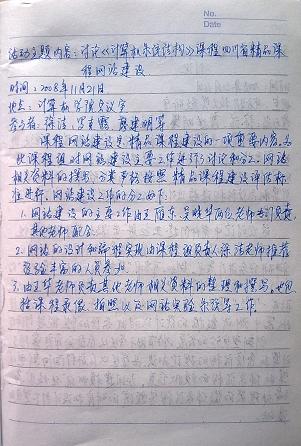 No.
Date
活动主题内容：讨论《计算机系统结构》课程四川省精品课
程网站建设
时间：2008年11月21日
地点：计算机学院会议室
参与者：徐洁 罗克露 蔡建明等
课程网站建设是精品课程建设的一项重要内容，为
此课程组对网站建设主要工作进行了讨论和分工。网站
相关资料的撰写、方案严格按照精品课程建设评估标
准进行。网站建设工作的分工如下：
1. 网站建设的主要工作由王雁东、吴晓华两位老师专门负责，
其他老师配合。
2. 网站的设计和编程实现由课程组负责人徐洁老师推荐
经验丰富的人员参加。
3. 由王华老师负责其他老师相关资料的整理和撰写，也包
括课程录像、拍照以及网站实验系统等工作。